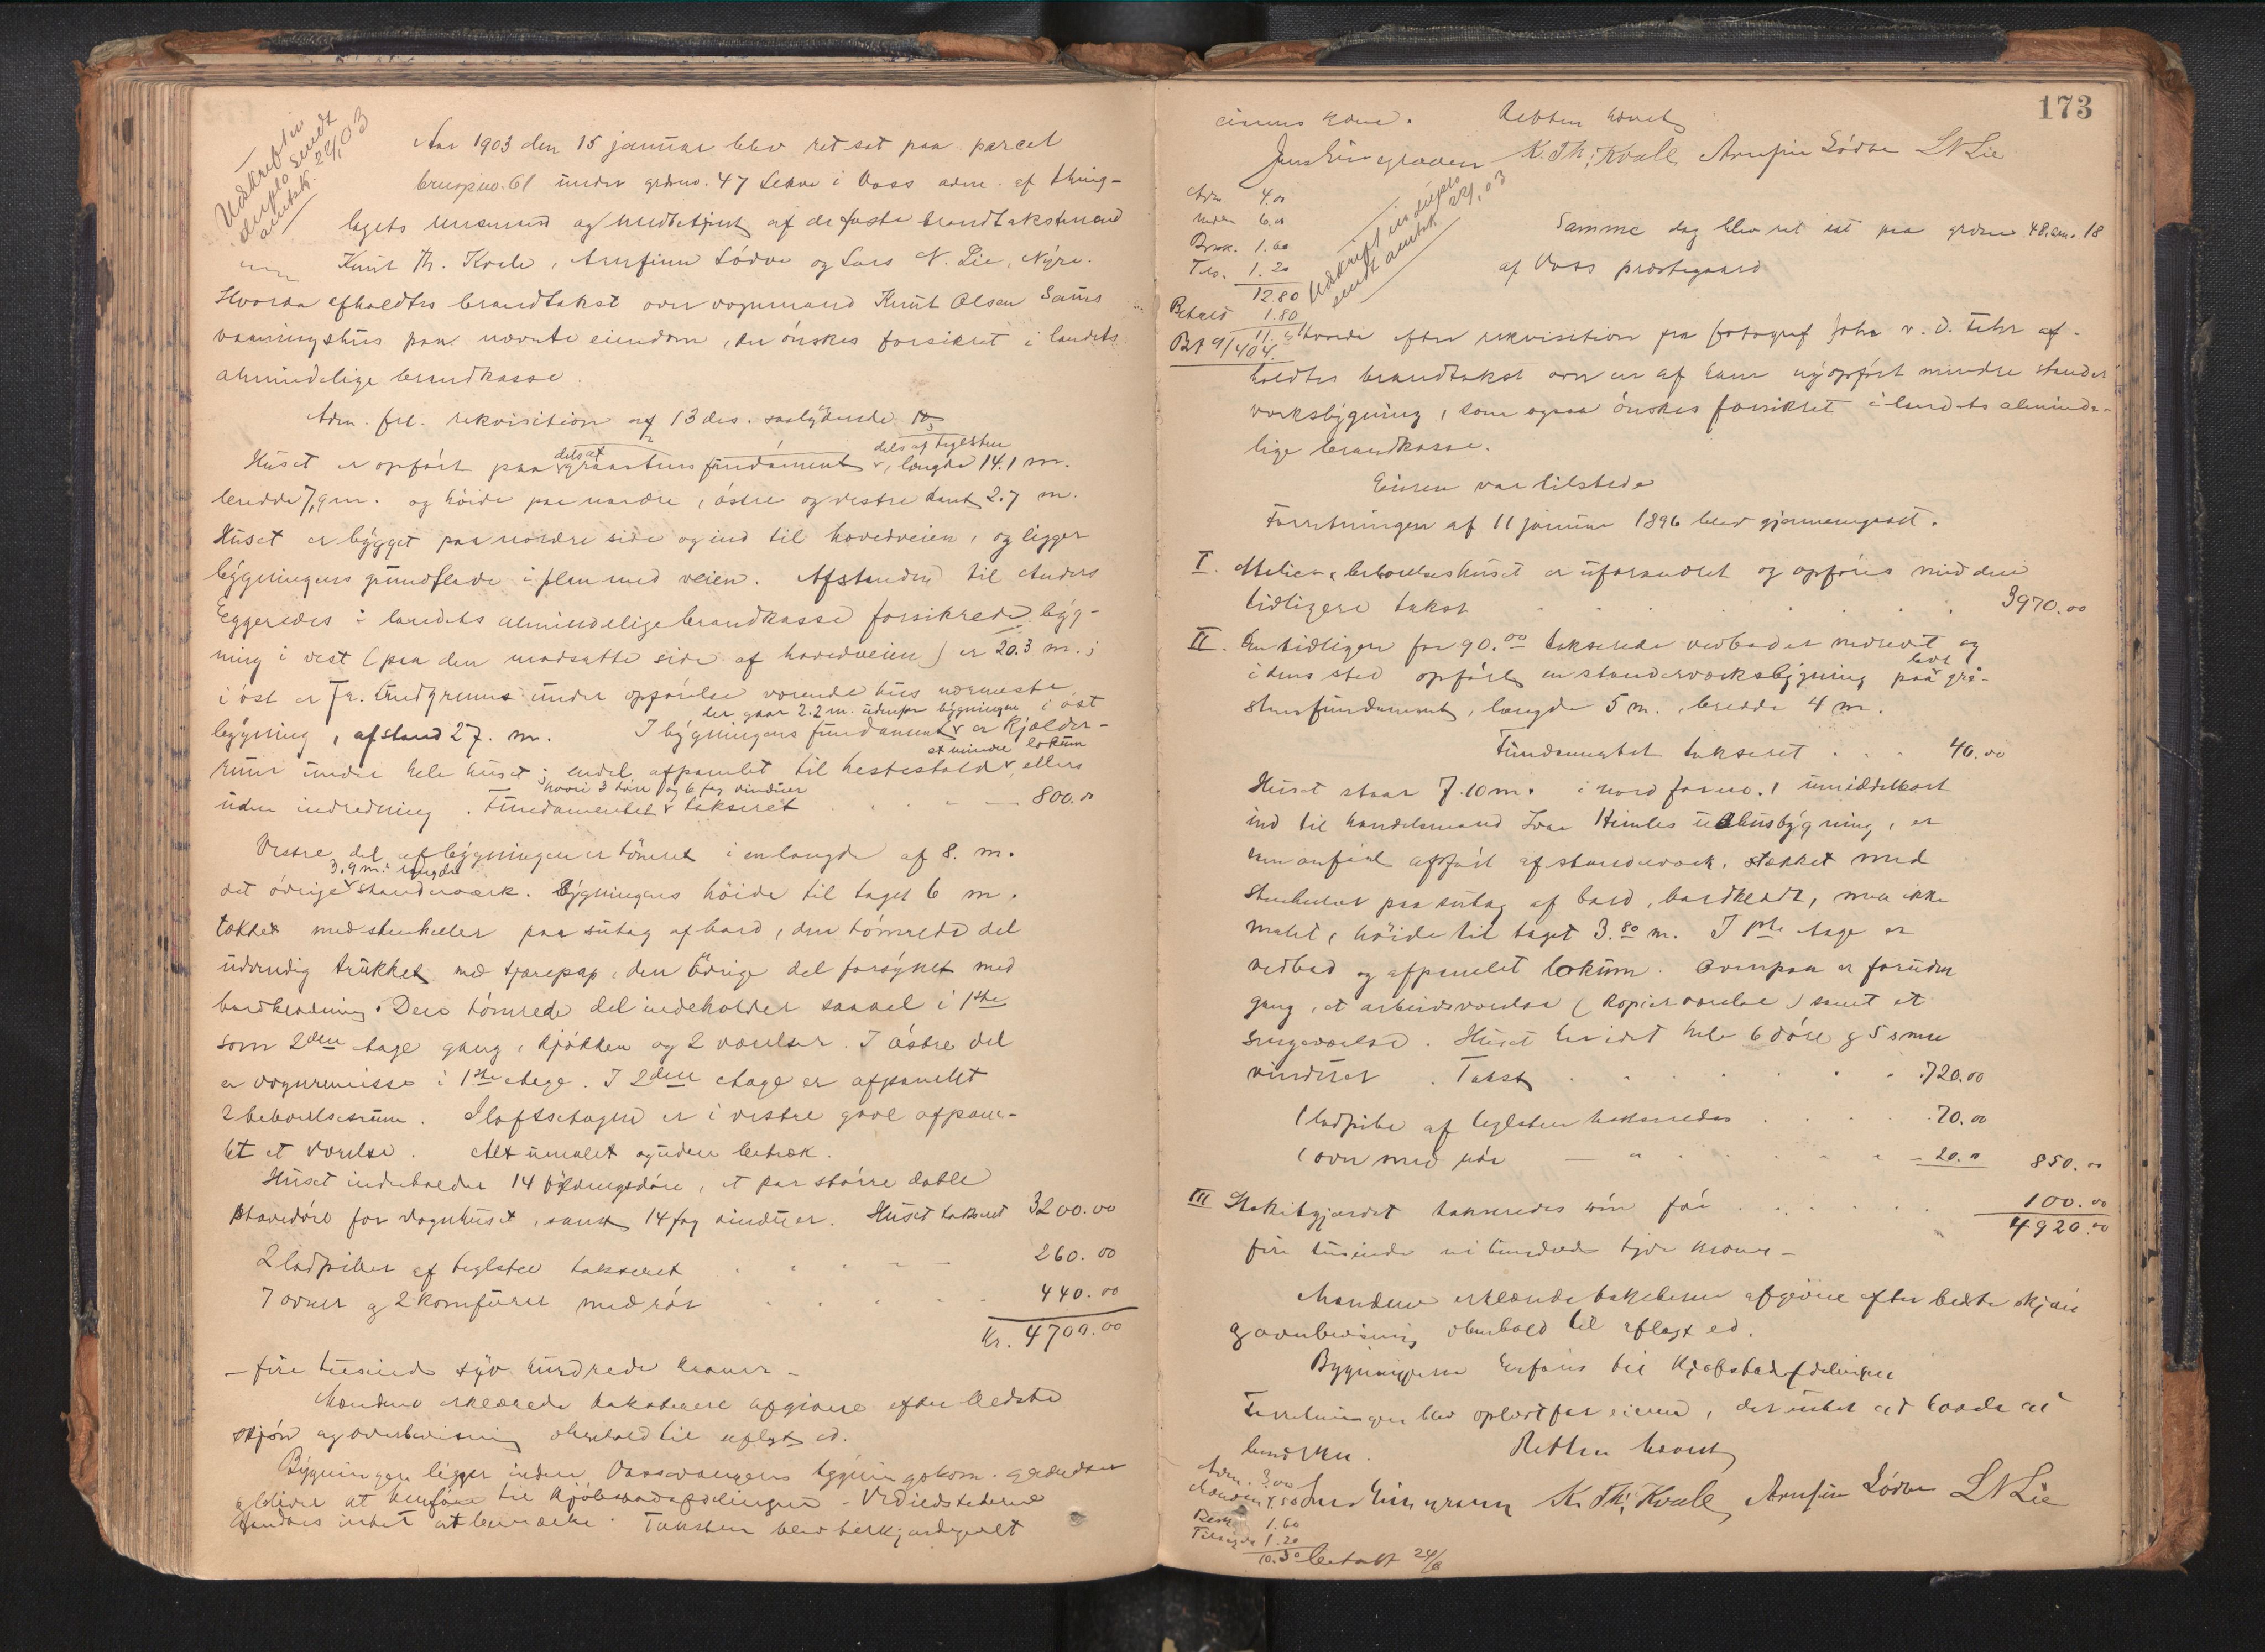 Udskrift in
duplo sendt
amtsk. 24/1 03
Aar 1903 den 15 januar blev ret sat paa parcel
brugsno. 61 under grdsno. 47 Lekve i Voss adm. af thing-
lagets lensmand og meddetjent af de faste brandtakstmænd
Knut Th. Kvale, Arnfinn Lødve og Lars N. Lie, Nyre.
Hvorda afholdtes brandtakst over vognmand Knut Olsen Saues
vaaningshus paa nævnte eiendom, der ønskes forsikret i landets
almindelige brandkasse.
Adm. frl. rekvisition af 13 des. saalydende
dels af dels af teglsten
Huset er opført paa graastens fundament, længde 14.1 m.
bredde 7,9 m. og høide paa nordre, østre og vestre kant 2.7 m.
Huset er bygget paa nordre side og ind til hovedveien, og ligger
bygningens grundflade i plan med veien. Afstanden til Anders
Eggereides i landets almindelige brandkasse forsikrede byg-
ning i vest (paa den modsatte side af hovedveien) er 20.3 m.;
i øst er Fr. Lindgrens under opførelse værende hus nærmeste
der gaar 2.2 m. udenfor bygningen i øst
bygning, afstand 27. m. I bygningens fundament er kjælder-
et mindre lokum
rum under hele huset; endel afpanelet til hestestald, ellers
hvori 3 døre og 6 fag vinduer
uden indredning. Fundamentet takseret 800.00
Vestre del af bygningen er tømret i en længde af 8. m.
3.9 m. i længde
det øvrige standerværk. Bygningens høide til taget 6 m.
tækket med stenheller paa sutag af bord, den tømrede del
udvendig trukket med tjærepap, den øvrige del forsynet med
bordklædning. Den tømrede del indeholder saavel i 1ste
som 2den etage gang, kjøkken og 2 værelser. I østre del
er vognremisse i 1ste etage. I 2den etage er afpanelet
2 beboelsesrum. I loftsetagen er i vestre gavl afpane-
let et værelse. Alt umalet og uden betræk.
Huset indeholder 14 fyldningsdøre, et par større doble
stavedøre for vognhuset, samt 14 fag vinduer. Huset takseret 3200.00
2 ladpiber af teglsten takseret 260.00
7 ovner og 2 komfurer med rør 440.00
Kr. 4700.00
– fire tusinde syv hundrede kroner –
Mændene erklærede taksterne afgivne efter bedste
skjøn og overbevisning i henhold til aflagt ed.
Bygningen ligger inden Vossevangens bygningskom. grændser
og bliver at henføre til kjøbstadafdelingen. Ved ildstederne
fandtes intet at bemærke. Taksten blev bekjendtgjort
173
eierens kone. Retten hævet
K. Th. Kvale Arnfin Lødve L N Lie
Adm. 4.00
Mænd 6.00
Bræk. 1.60
Tils. 1.20
12.80
Betalt 1.80
11.00
Udskrift in duplo
sendt amtsk. 24/1 03
Samme dag blev ret sat paa grdsno. 48, brno. 18
af Voss præstegaard
Hvorda efter rekvisition fra fotograf John v. d. Fehr af-
holdtes brandtakst over en af ham nyopført mindre stander-
værksbygning, som ogsaa ønskes forsikret i landets alminde-
lige brandkasse.
Eieren var tilstede
Forretningen af 11 januar 1896 blev gjennemgaaet.
I. Atelier & beboelseshuset er uforandret og opføres med den
tidligere takst 3970.00
II. En tidligere for 90.00 takserede vedbod er nedrevet og
i dens sted opført en standerværksbygning paa graa-
stensfundament, længde 5 m., bredde 4 m.
Fundamentet takseret 40.00
Huset staar 7.10 m. i nord for no. 1 umiddelbart
ind til handelsmand Ivar Himles udhusbygning, er
som anført opført af standerværk, tækket med
stenheller paa sutag af bord, bordklædt, men ikke
malet, høide til taget 3.80 m. I 1ste etage er
vedbod og afpanelet lokum. Ovenpaa er foruden
gang, et arbeidsværelse (kopierværelse) samt et
sengeværelse. Huset har i det hele 6 døre & 5 smaa
vinduer. Takst 720.00
1 ladpibe af teglsten takseredes 70.00
1 ovn med rør 20.00 850.00
III Stakitgjærdet takseredes som før 100.00
4920.00
fire tusinde ni hundrede tyve kroner –
Mændene erklærede taksterne afgivne efter bedste skjøn
og overbevisning i henhold til aflagt ed.
Bygningerne henføres til Kjøbstadafdelingen
Forretningen blev oplæst for eieren, der intet havde at
bemærke. Retten hævet
Adm. 3.00
Mænd 4.50
Bræk 1.60
Tilsigelse 1.20
10.30 betalt 24/8
K. Th. Kvale Arnfin Lødve L N Lie